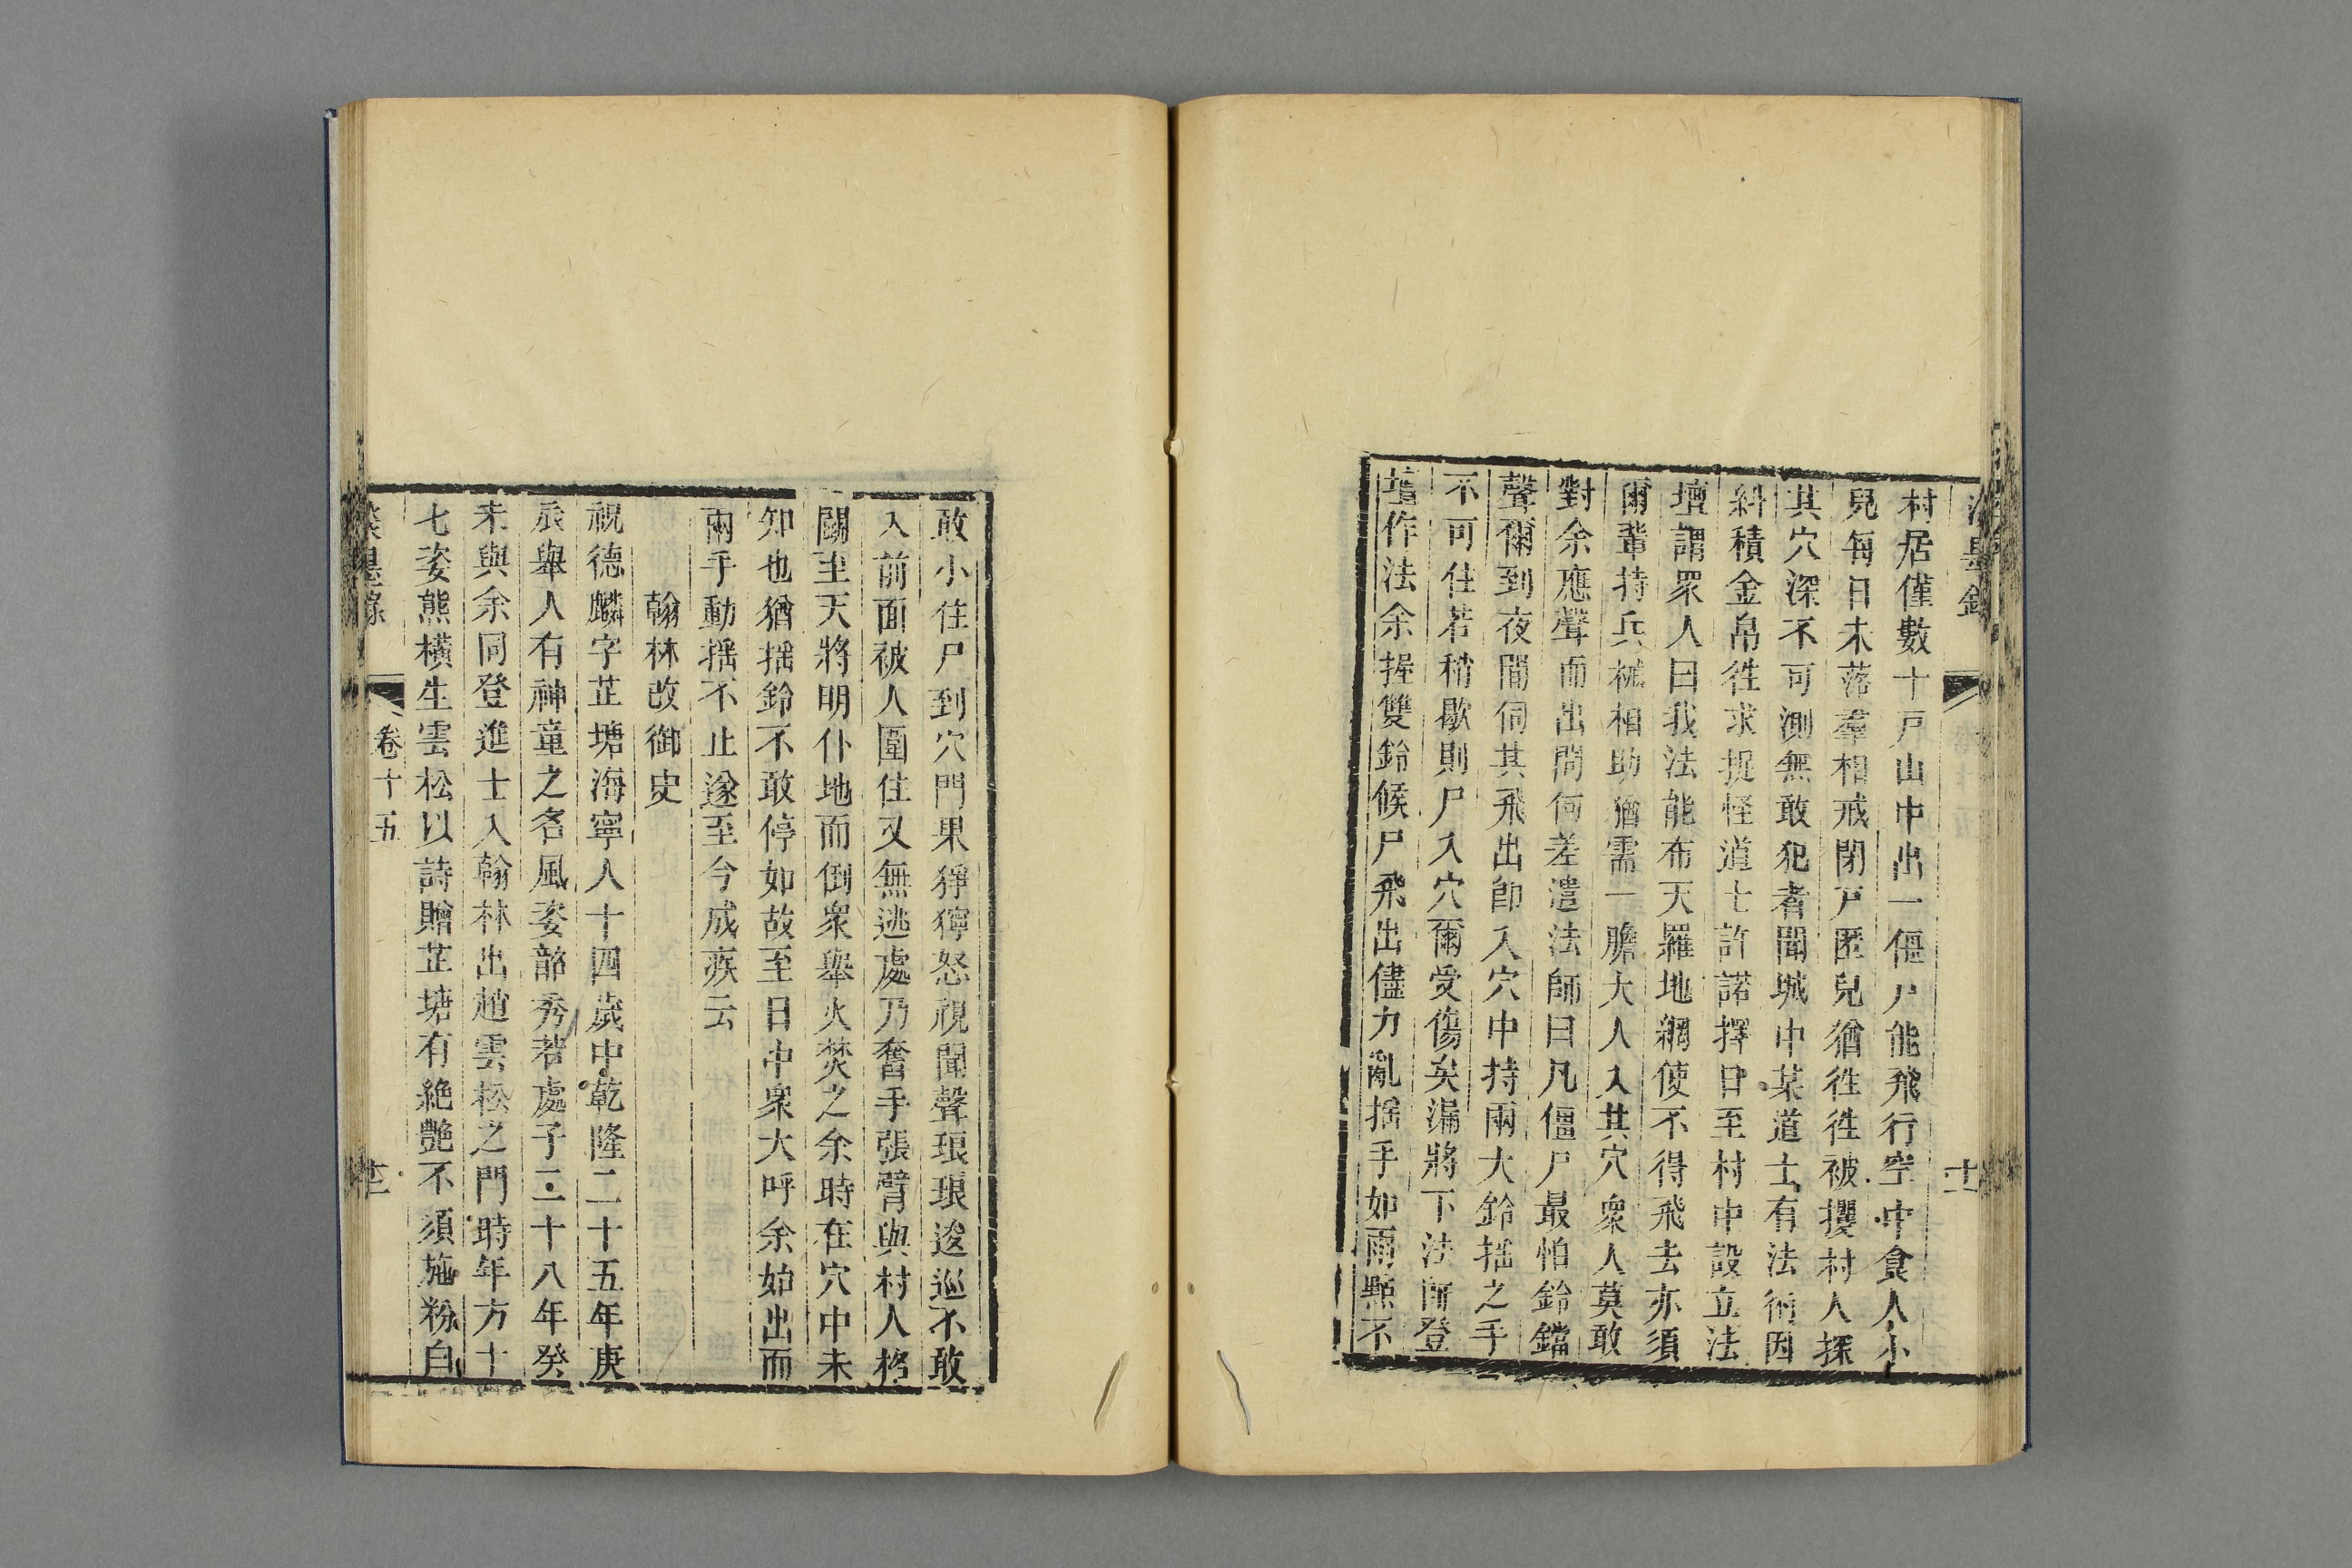 村居僅數十戸山中出一僵尸能飛行空中食人小
兒每日未落羣相戒閉戸匿兒猶徃徃被攫村人探
其穴深不可測無敢犯者聞城中某道士有法術因
糾積金帛徃求捉怪道士許諾擇日至村中設立法
壇謂眾人曰我法能布天羅地網使不得飛去亦須
爾輩持兵械相助猶需一膽大人入其穴衆人莫敢
對余應聲而出問何差遣法師曰凡僵尸最怕鈴鐺
聲爾到夜間伺其飛出卽入穴中持兩大鈴揺之手
不可住若稍歇則尸入穴爾受傷矣漏將下法師登
壇作法余握雙鈴候尸飛出儘力亂揺手如雨點不
敢小住尸到穴門果猙獰怒視聞聲琅琅逡巡不敢
入前面被人圍住又無逃處乃奮手張臂與村人格
鬭至天將明仆地而倒衆舉火焚之余時在穴中未
知也猶揺鈴不敢停如故至日中衆大呼余始出而
兩手動揺不止遂至今成疾云
翰林改御史
祝德麟字芷塘海寧人十四歲中乾隆二十五年庚
辰舉人有神童之名風姿韶秀若處子二十八年癸
未與余同登進士入翰林出趙雲松之門時年方十
七姿熊橫生雲松以詩贈芷塘有絶艶不須施粉白
卷十五